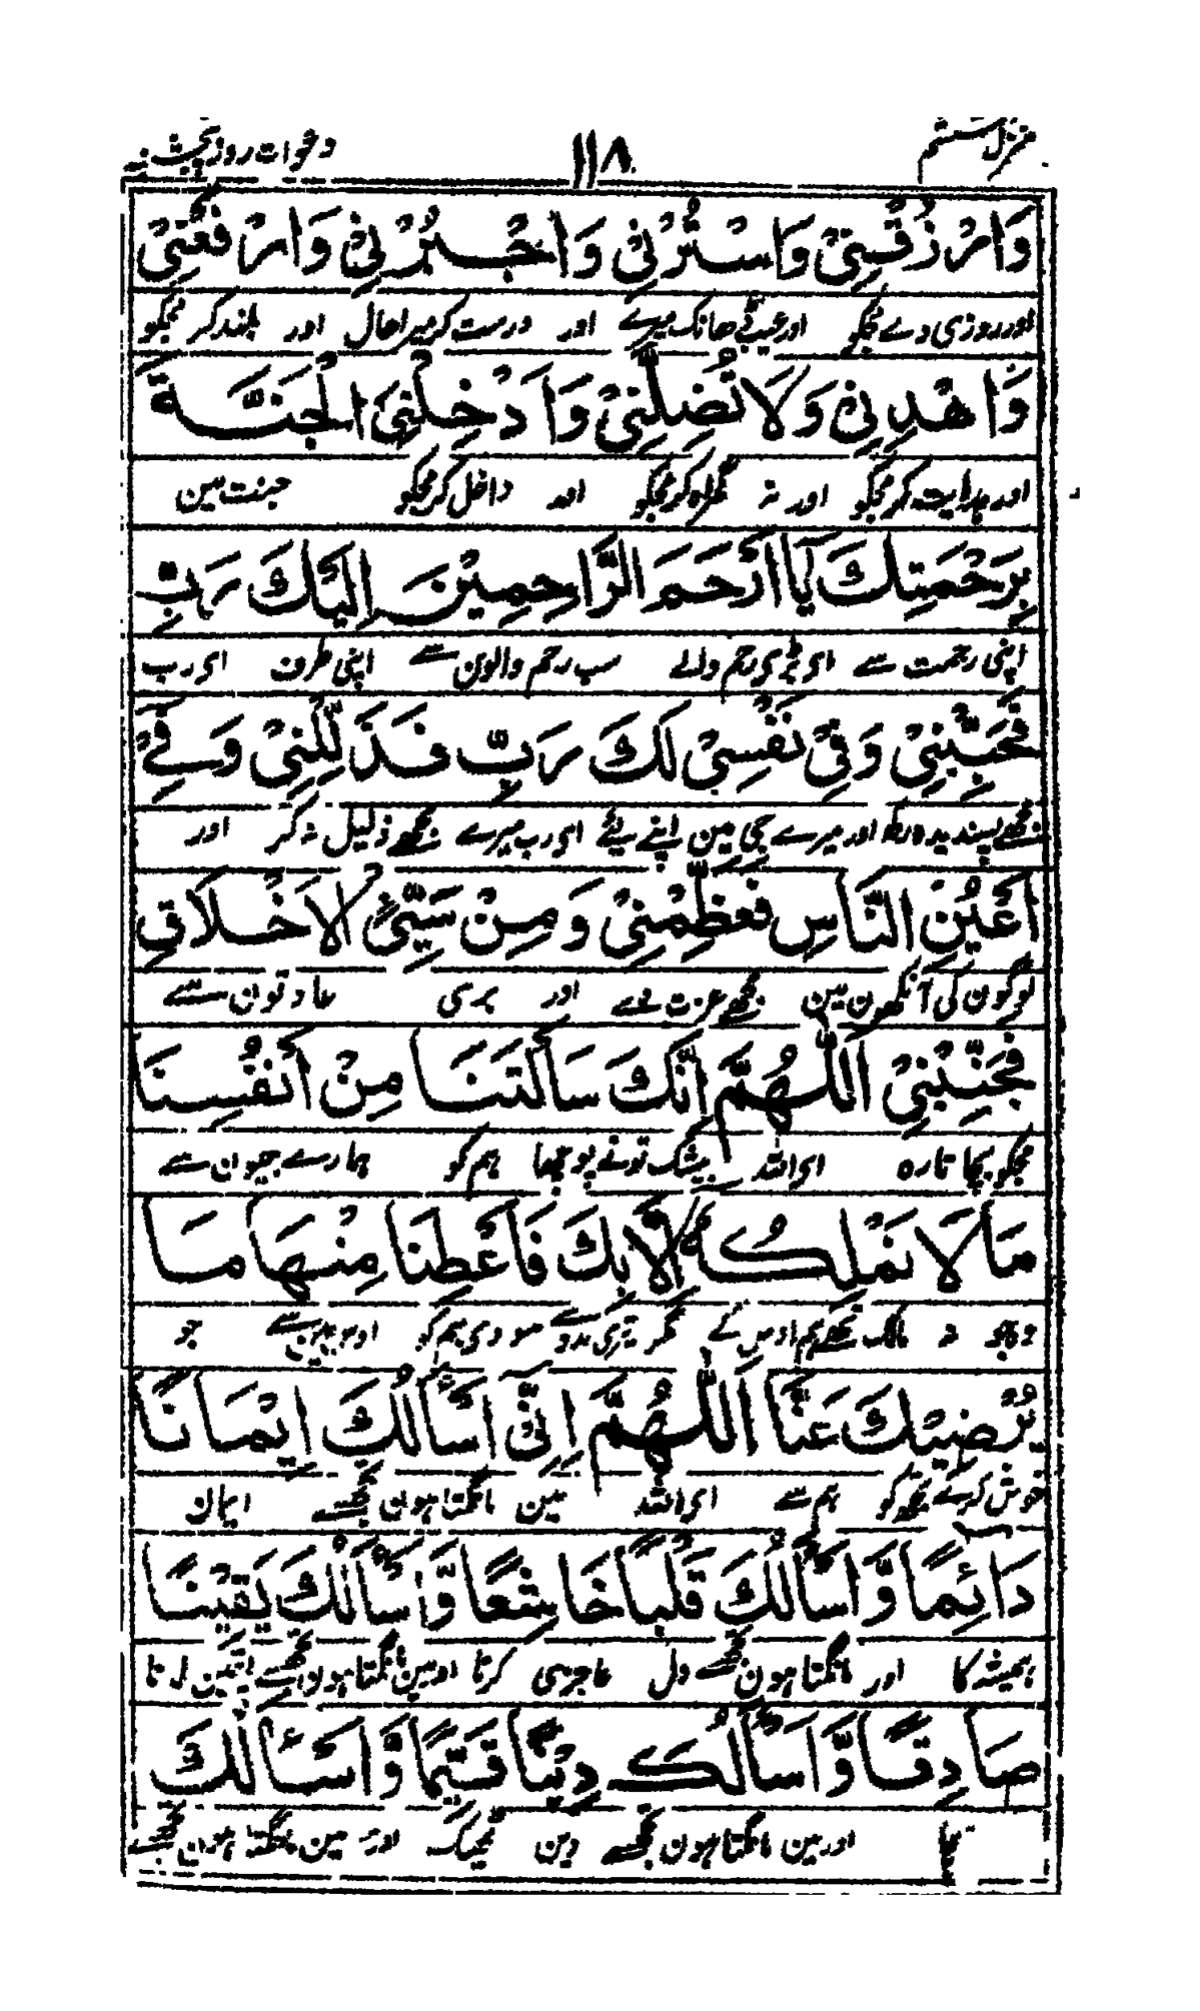 منزل ششم ۱۱۸ دعوات روز پنجشنبہ
وَارْزُقْنِيْ وَاسْتُرْنِيْ وَاجْبُرْنِيْ وَارْفَعْنِيْ
اور روزی دے مجکو اور عیب ڈھانک میرے اور درست کر میرا حال اور بلند کر مجکو
وَاهْدِنِيْ وَلَا تُضِلَّنِيْ وَاَدْخِلْنِيَ الْجَنَّةَ
اور ہدایت کر مجکو اور نہ گمراہ کر مجکو اور داخل کر مجکو جنت مین
بِرَحْمَتِكَ يَا اَرْحَمَ الرَّاحِمِيْنَ اِلَيْكَ رَبِّ
اپنی رحمت سے ای بڑی رحم والے سب رحم والون سے اپنی طرف ای رب
فَحَبِّبْنِيْ وَفِيْ نَفْسِيْ لَكَ رَبِّ فَذَلِّلْنِيْ وَفِيْ
مجھے پسندیدہ رکھ اور میرے جی مین اپنے لیئے ای رب میرے مجھے ذلیل نہ کر اور
اَعْيُنِ النَّاسِ فَعَظِّمْنِيْ وَمِنْ سَيِّئِ الْاَخْلَاقِ
لوگون کی آنکھون مین مجھے عزت دے اور بری عادتون سے
فَجَنِّبْنِيْ اَللّٰهُمَّ اِنَّكَ سَاَلْتَنَا مِنْ اَنْفُسِنَا
مجکو بچاتا رہ ای اللہ بیشک تونے پوچھا ہم کو ہمارے جیون سے
مَا لَا نَمْلِكُهٗ اِلَّا بِكَ فَاَعْطِنَا مِنْهَا مَا
وہ جو نہ مالک تھے ہم اوس کے مگر تیری مدد سے سو دی ہم کو اوس مین سے جو
يُرْضِيْكَ عَنَّا اَللّٰهُمَّ اِنِّيْ اَسْاَلُكَ اِيْمَانًا
خوش کرے تجھکو ہم سے ای اللہ مین مانگتا ہون تجھسے ایمان
دَائِمًا وَّاَسْاَلُكَ قَلْبًا خَاشِعًا وَّاَسْاَلُكَ يَقِيْنًا
ہمیشہ کا اور مانگتا ہون تجھسے دل عاجزی کرتا اور مین مانگتا ہون تجھسے یقین
صَادِقًا وَّاَسْاَلُكَ دِيْنًا قَيِّمًا وَّاَسْاَلُكَ
سچا اور مین مانگتا ہون تجھسے دین ٹھیک اور مین مانگتا ہون تجھسے